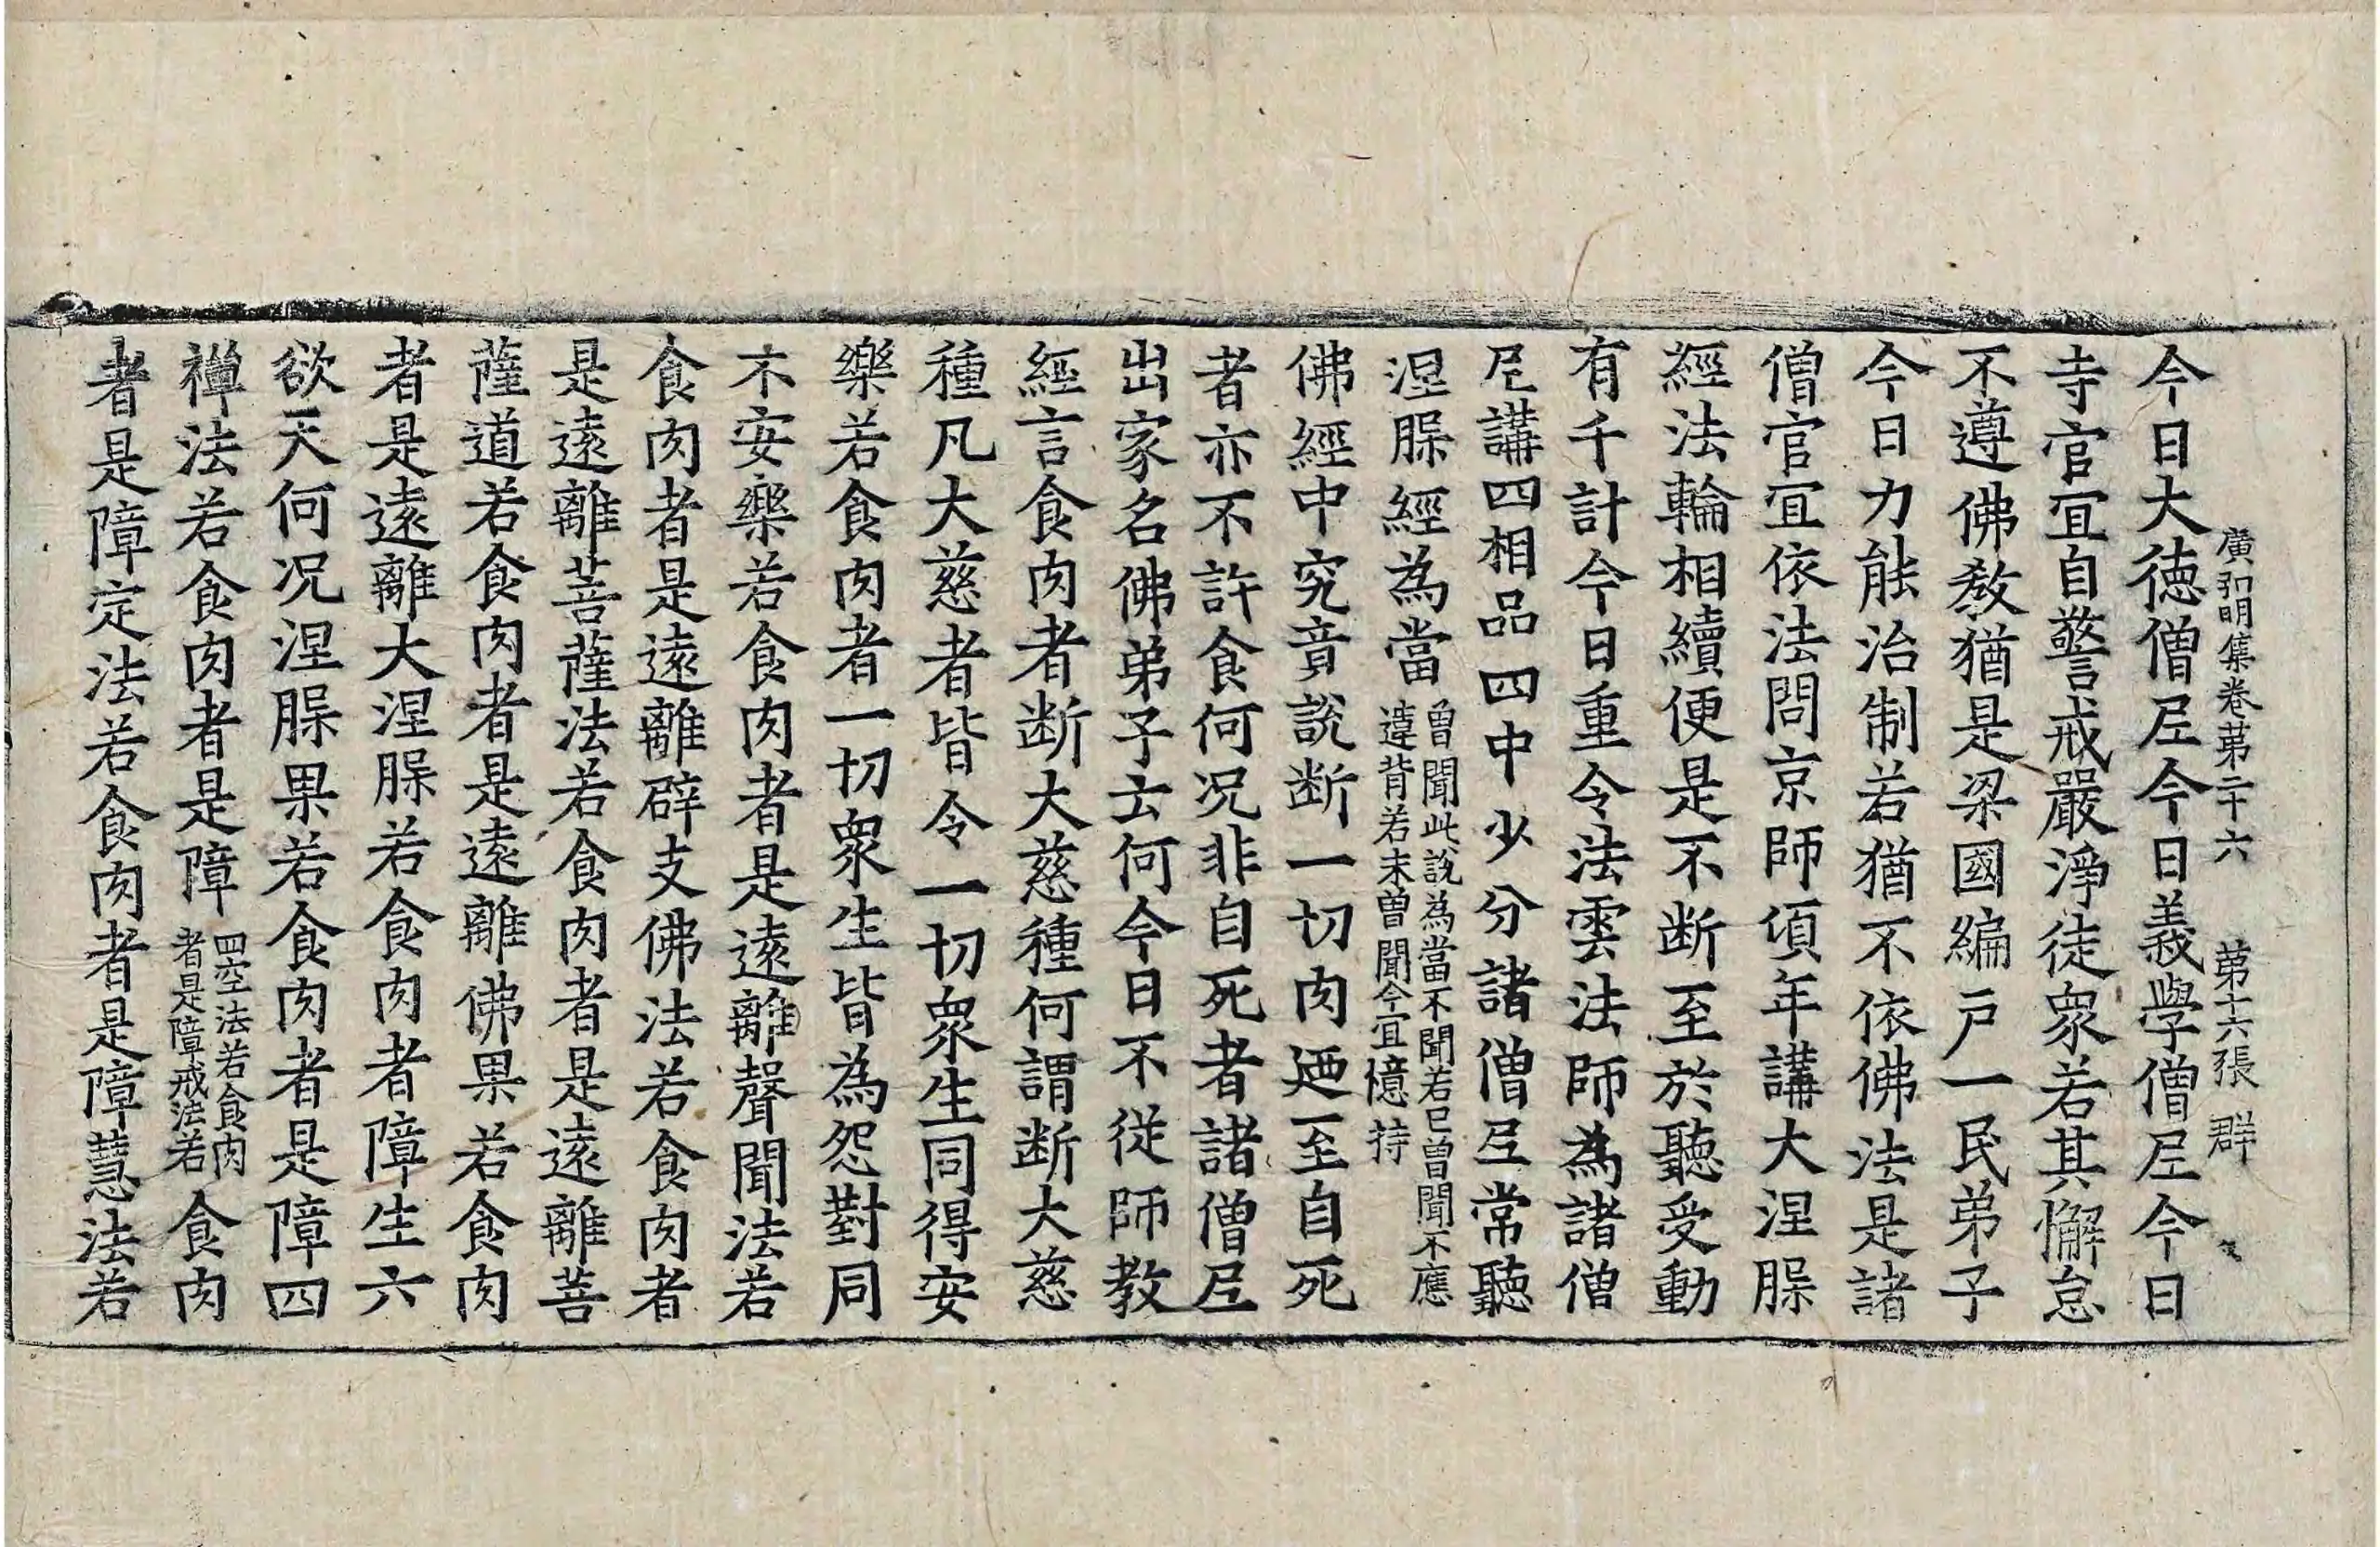 廣弘明集卷苐二十六 苐十六張 群
今日大徳僧尼今日義學僧尼今日
寺官冝自警戒嚴淨徒衆若其懈怠
不遵佛教猶是梁國編戸一民弟子
今日力能治制若猶不依佛法是諸
僧官冝依法問京師頃年講大涅槃
經法輪相續便是不断至於聽受動
有千計今日重令法雲法師為諸僧
尼講四相品四中少分諸僧尼常聽
涅槃經為當曽聞此說為當不聞若已曽聞不應
違背若未曽聞今宜憶持
佛經中究竟說断一切肉迺至自死
者亦不許食何况非自死者諸僧尼
出家名佛弟子云何今日不從師教
經言食肉者断大慈種何謂断大慈
種凡大慈者皆令一切衆生同得安
樂若食肉者一切衆生皆為怨對同
不安樂若食肉者是遠離聲聞法若
食肉者是遠離辟支佛法若食肉者
是遠離菩薩法若食肉者是遠離菩
薩道若食肉者是遠離佛果若食肉
者是遠離大涅槃若食肉者障生六
欲天何况涅槃果若食肉者是障四
禅法若食肉者是障四空法若食肉
者是障戒法若食肉
者是障定法若食肉者是障慧法若